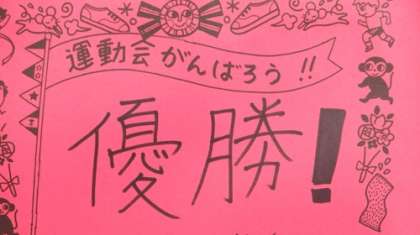 運動会がんばろう!!
優勝!